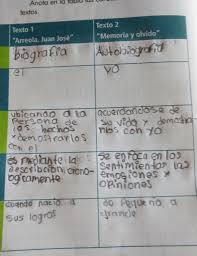 Anota en la tabla las
textos.
Texto 1
"Arreola, Juan José"
Texto 2
"Memoria y olvido"
biografia
Autobiografia
el
yo
ubicando a la
persona de
los hechos
y demostrarlos
con el
acuerdandose de
su vida y demostra
rnos con yo
es mediante la
describcion crono-
ogicamente
se enfoca en los
sentimientos las
emosiones y
opiniones
cuando nacio a
sus logros
de pequeño a
grande